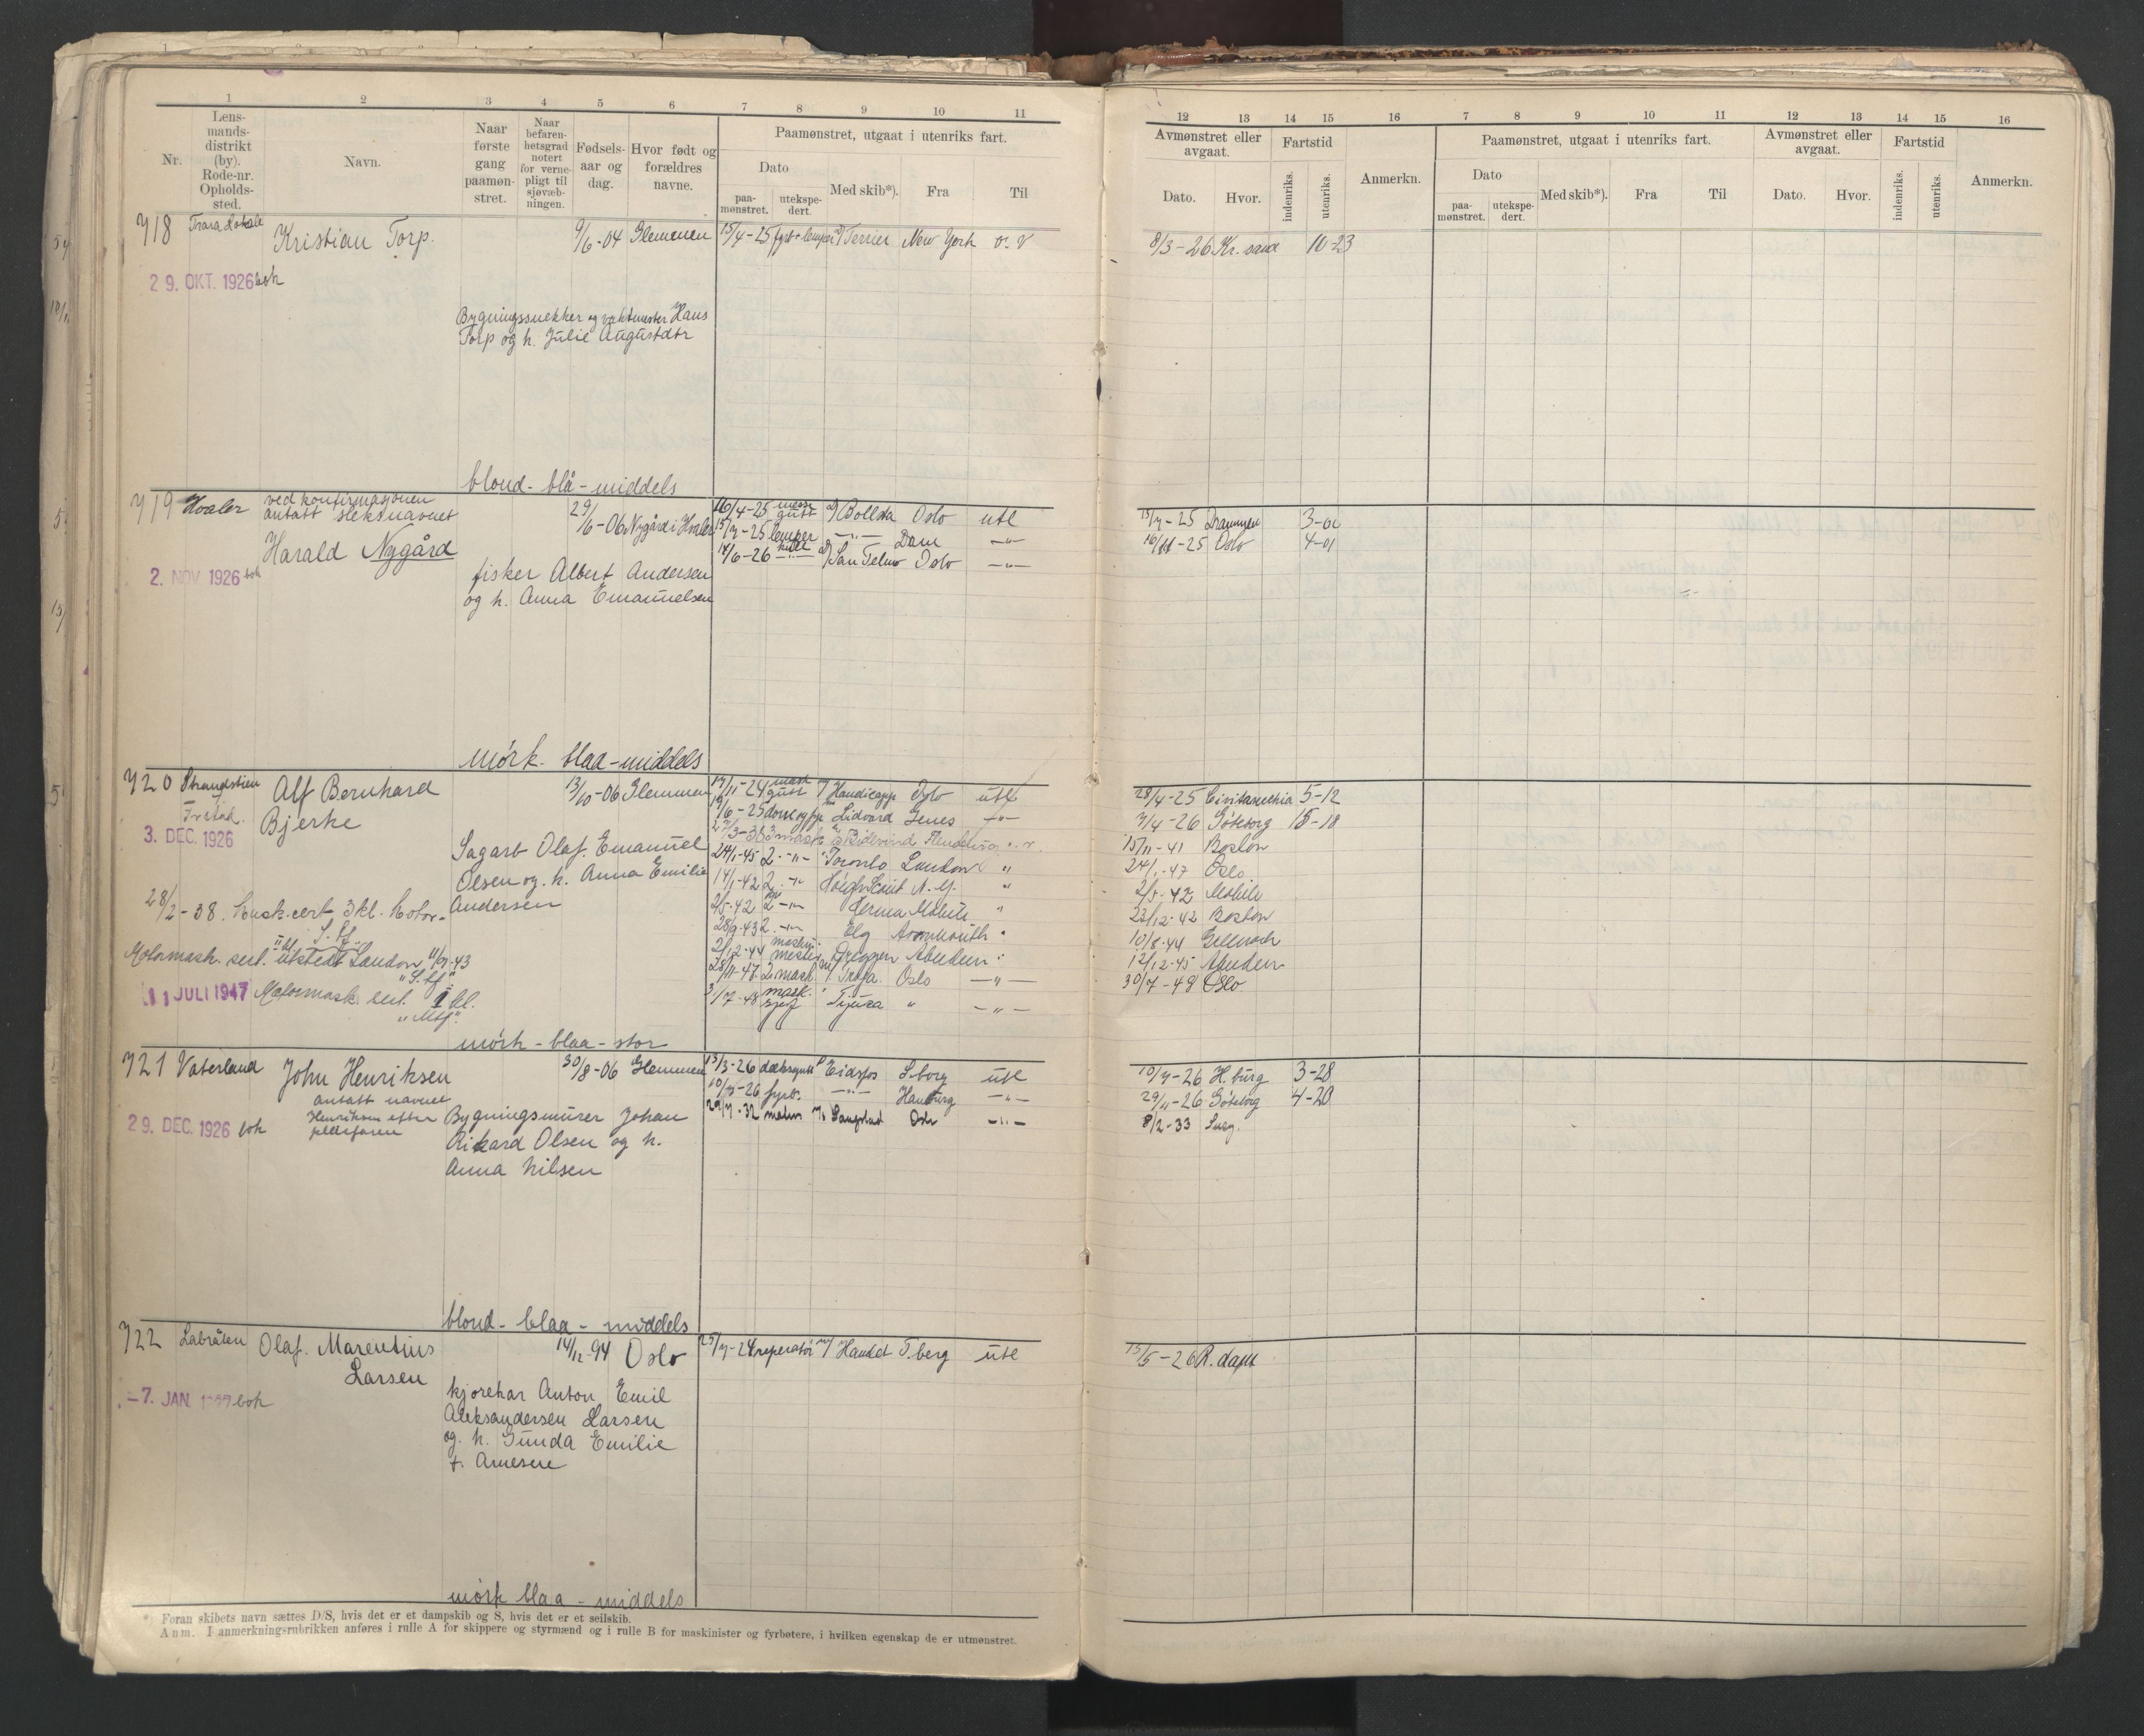 1 2 3 4 5 6 7 8 9 10 11
Nr.
Lens-
mands-
distrikt
(by).
Rode-nr.
Opholds-
sted.
Navn.
Naar
første
gang
paamøn-
stret.
Naar
befaren-
hetsgrad
notert
for verne-
pligt til
sjøvæb-
ningen.
Fødsels-
aar og
dag.
Hvor født og
forældres
navne.
Paamønstret, utgaat i utenriks fart.
Dato
paa-
mønstret.
utekspe-
dert.
Med skib*).
Fra
Til
718 Kristian Torp. 9/6-04 Glemmen 15/4-25 Terrier New York o. V
29. OKT. 1926 boh
Bygningssnekker og vaktmester Hans
Torp og h. Julie Augustdtr
blond - blå - middels
719 Hvaler ved konfirmasjonen
antatt slektsnavnet
Harald Nygård
29/6-06 Nygård i Hvaler
16/4-25 Bollsta Oslo utl
15/7-25 lemper -"- Dram -"-
14/6-26 -"- San Telmo Oslo -"-
2. NOV 1926 boh
fisker Albert Andersen
og h. Anna Emanuelsen
mörk - blaa - middels
720 Strandstien
Fr.stad.
Alf Bernhard
Bjerke
13/10-06 Glemmen
17/11-24 mask gutt Handicapp Oslo utl
19/6-25 Lidvard Genes -"-
27/3-38 3 mask
24/1-45 2. -"- Toronto London "
14/1-42 2. -"- Höegh Scout N.Y. "
2/5-42 2 -"- Herma Mobile "
28/9-43 2. -"- Elg Avonmouth "
2/12-44 maskin mester Dreggen Aberdeen "
28/11-47 2 mask. Troja. Oslo -"-
3/7-48 mask. sjef Tijuca " -"-
3. DEC. 1926
Sagarb. Olaf Emanuel
Olsen og h. Anna Emilie
Andersen
28/2-38. Mask.cert 3kl. Motor-
Motormask. sert. utstedt London 11/9-43
11 JULI 1947 Motormask sert. 1 kl.
mörk - blaa - stor
721 Vaterland John Henriksen
antatt navnet
Henriksen efter
pleiefaren
30/8-06 Glemmen
13/3-26 dæksgutt Eidsfos S.borg utl
10/7-26 fyrb. -"- Hamburg -"-
29/7-32 matr Oslo -"-
29. DEC. 1926 boh
Bygningsmurer Johan
Rikard Olsen og h.
Anna Nilsen
blond - blaa - middels
722 Labråten Olaf. Marentius
Larsen
14/12-94 Oslo
25/7-24 reperatör Handet T.berg utl
-7. JAN. boh
kjorekar Anton Emil
Aleksandersen Larsen
og h. Gunda Emilie
f. Arnesen
mörk blaa - middels
*) Foran skibets navn sættes D/S, hvis det er et dampskib og S, hvis det er et seilskib.
Anm. I anmerkningsrubrikken anføres i rulle A for skippere og styrmænd og i rulle B for maskinister og fyrbøtere, i hvilken egenskap de er utmønstret.
12 13 14 15 16 7 8 9 10 11 12 13 14 15 16
Avmønstret eller
avgaat.
Dato.
Hvor.
Fartstid
indenriks.
utenriks.
Anmerkn.
Paamønstret, utgaat i utenriks fart.
Dato
paa-
mønstret.
utekspe-
dert.
Med skib*).
Fra
Til
Avmønstret eller
avgaat.
Dato.
Hvor.
Fartstid
indenriks.
utenriks.
Anmerkn.
8/3-26 Kr. sand 10-23
15/7-25 Drammen
16/11-25 Oslo 4-01
28/4-25 Civitavechia 5-12
7/4-26 Göteborg 15-18
15/11-41 Boston
24/1-47 Oslo
2/5-42 Mobile
22/12-42 Boston
10/8-44
12/12-45 Aberdeen
30/7-48 Oslo
10/7-26 H.burg 3-28
29/11-26 Göteborg 4-20
8/2-33
15/5-26 R.dam